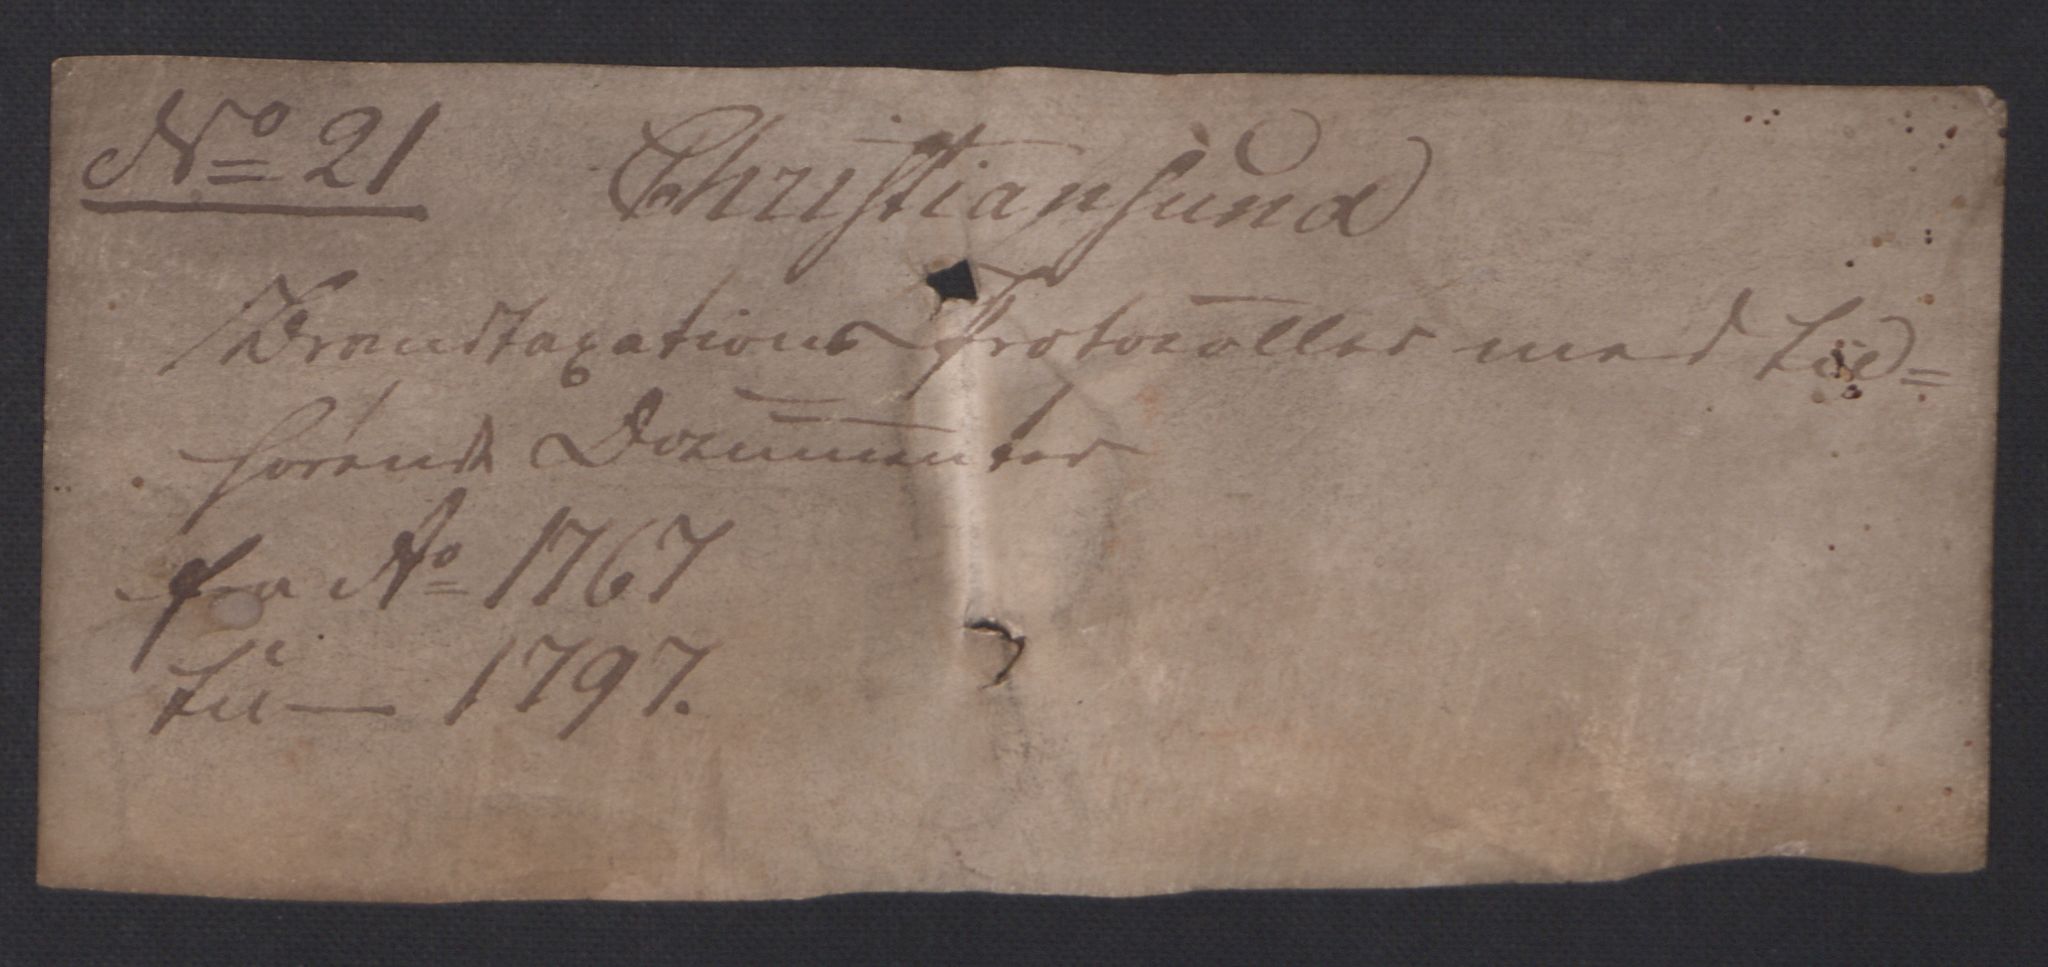 No 21 Christiansund
Brandtaxations Protocoller med til=
hørende Documenter
fra Ao 1767
til — 1797.